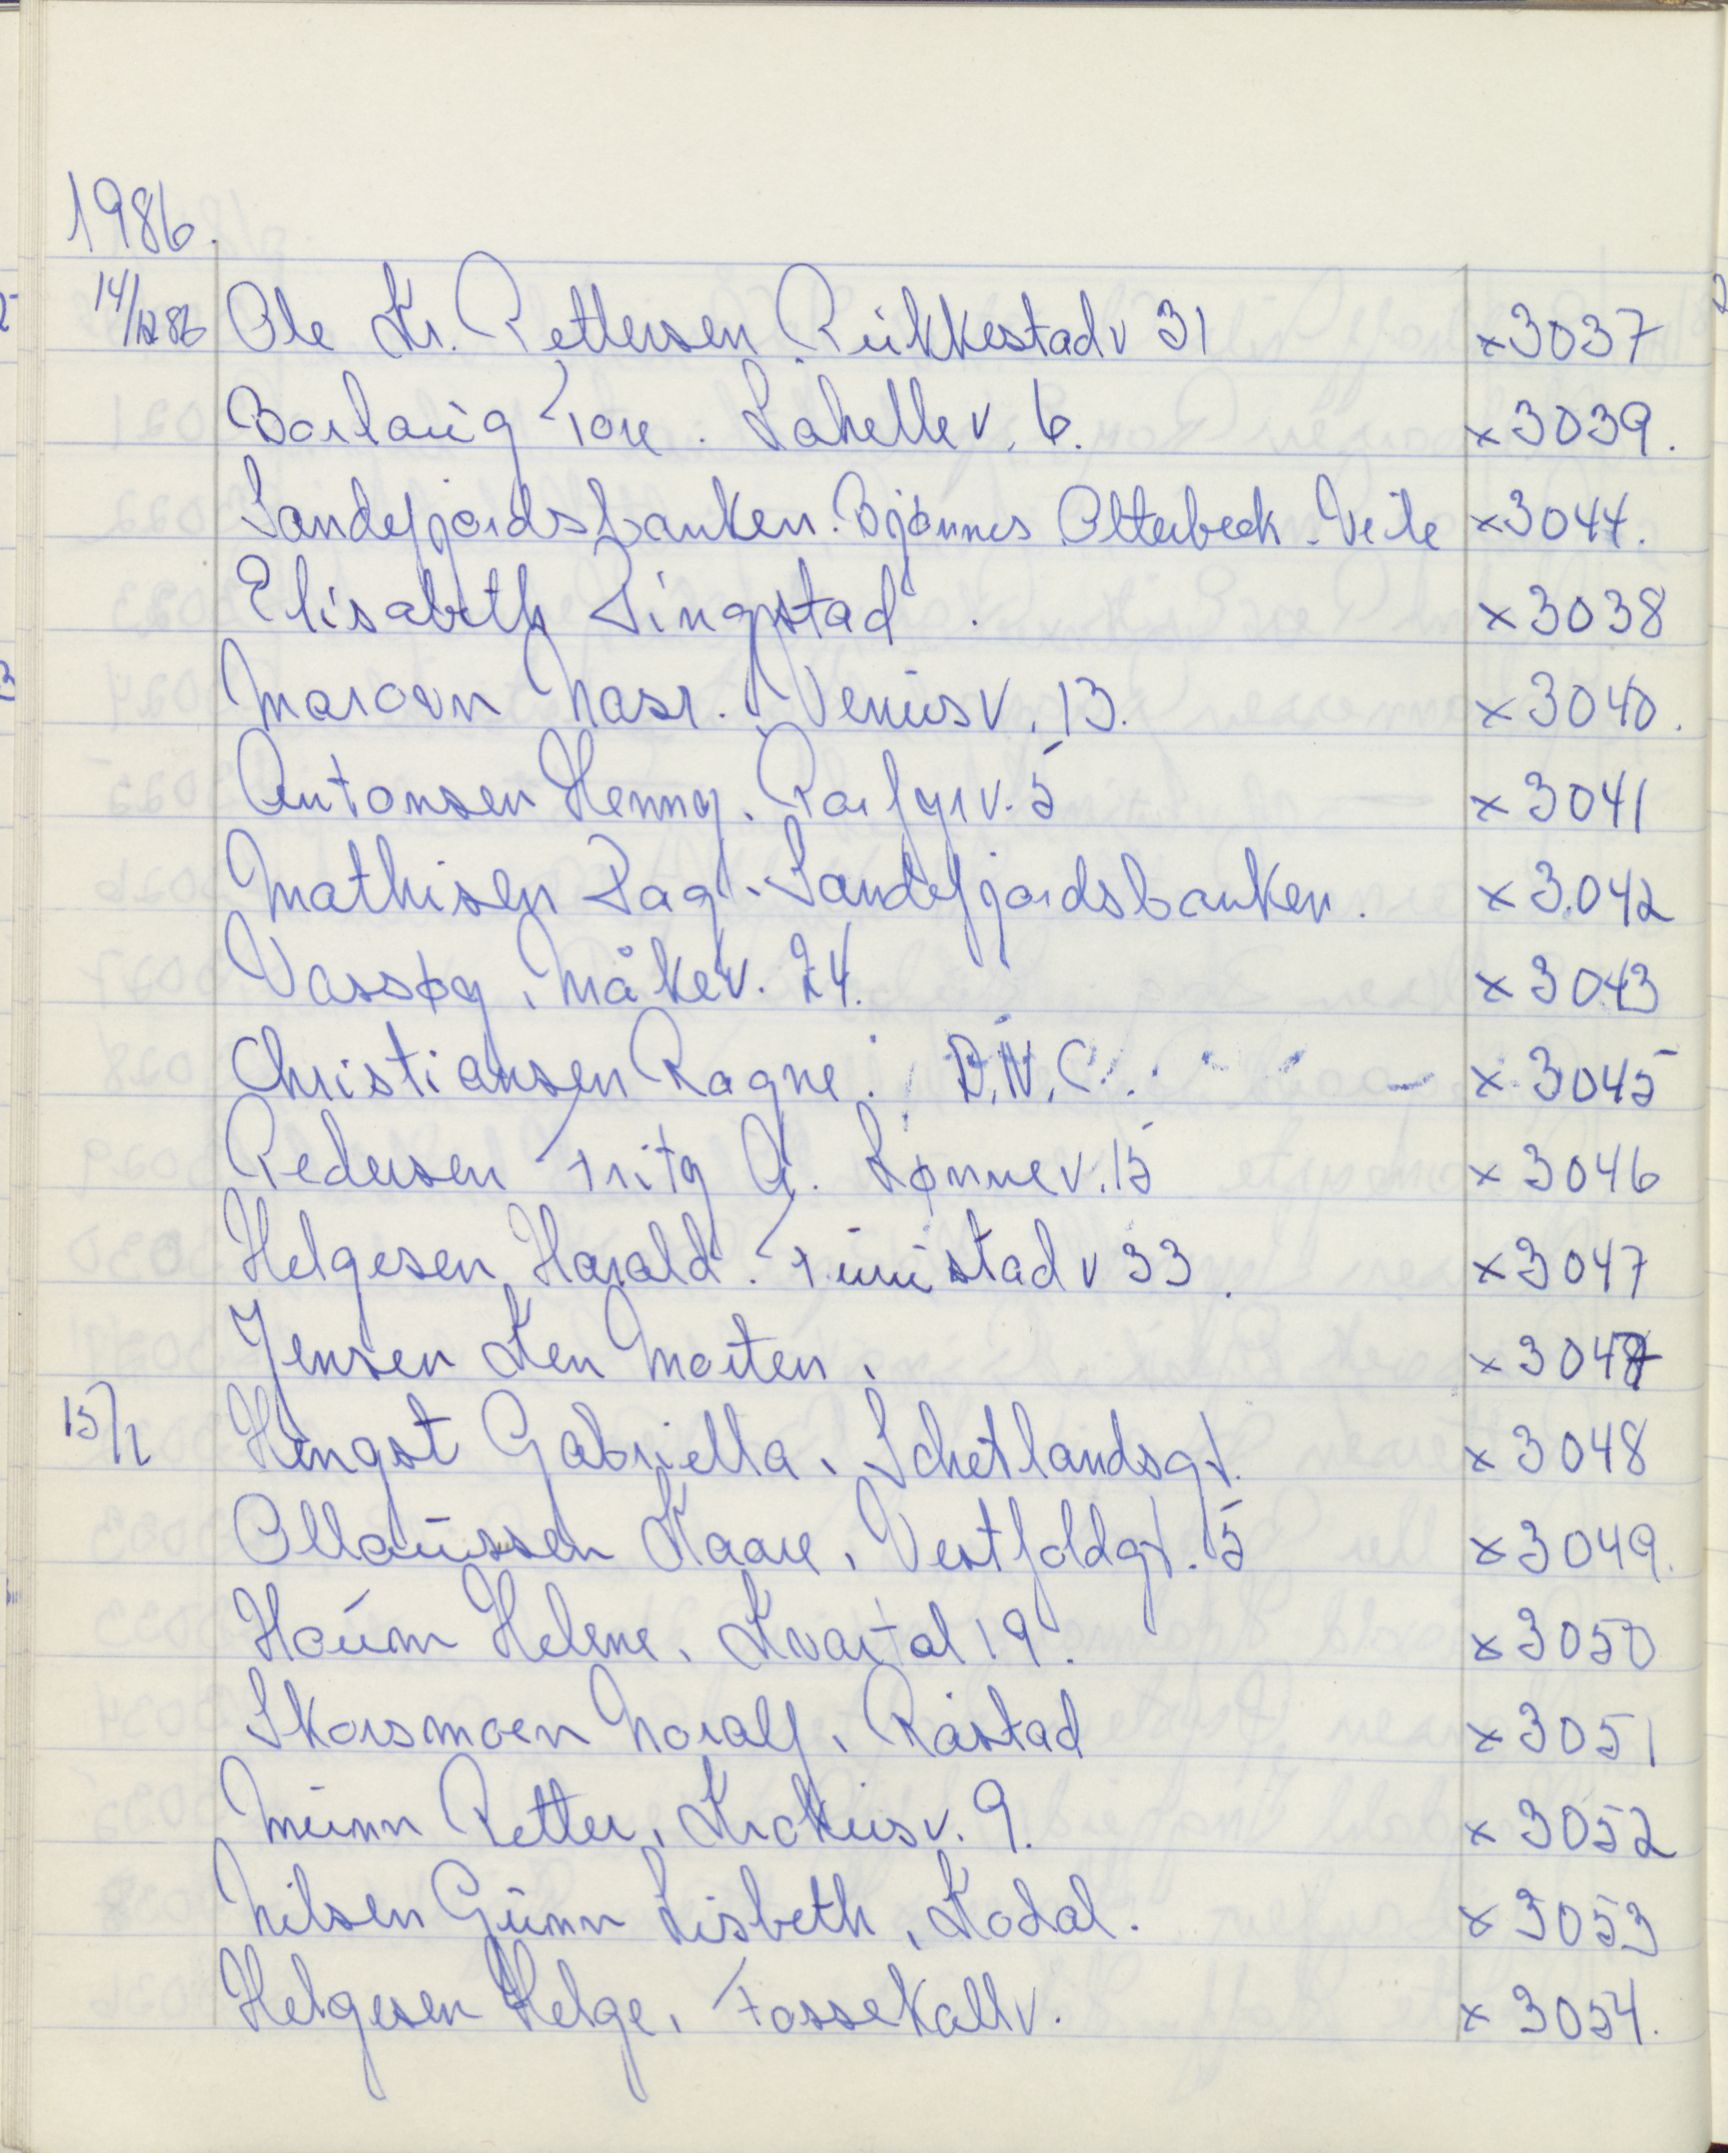 1986.
14/12 86 Ole Kr. Pettersen Pukkestadv 31 x3037
Barlaug Tore. Lahellev. 6. x3039.
Sandefjordsbanken. Bjønnes Otterbeck Veile x3044.
Elisabeth Tingstad. x3038
Marovn Nasr. Venusv. 13. x3040.
Antonsen Henny. Parfyrv. 5 x3041
Mathisen Dag. Sandefjordsbanken. x3042
Vassøy, Måkev. 24. x3043
Christiansen Ragne. D.N.C. x3045
Pedersen Fritz A. Lønnev. 15 x3046
Helgesen Harald. Furustadv 33. x3047
Jensen Ken Morten. x3047
15/1 Hengst Gabriella. Schetlandsgt. x3048
Ollaussen Kaare. Vestfoldgt. 5 x3049.
Haum Helene. Kvartal 19. x3050
Skorsmoen Noralf. Råstad x3051
Munn Petter. Krokusv. 9. x3052
Nilsen Gunn Lisbeth. Kodal. x3053
Helgesen Helge. Fossekallv. x3054.